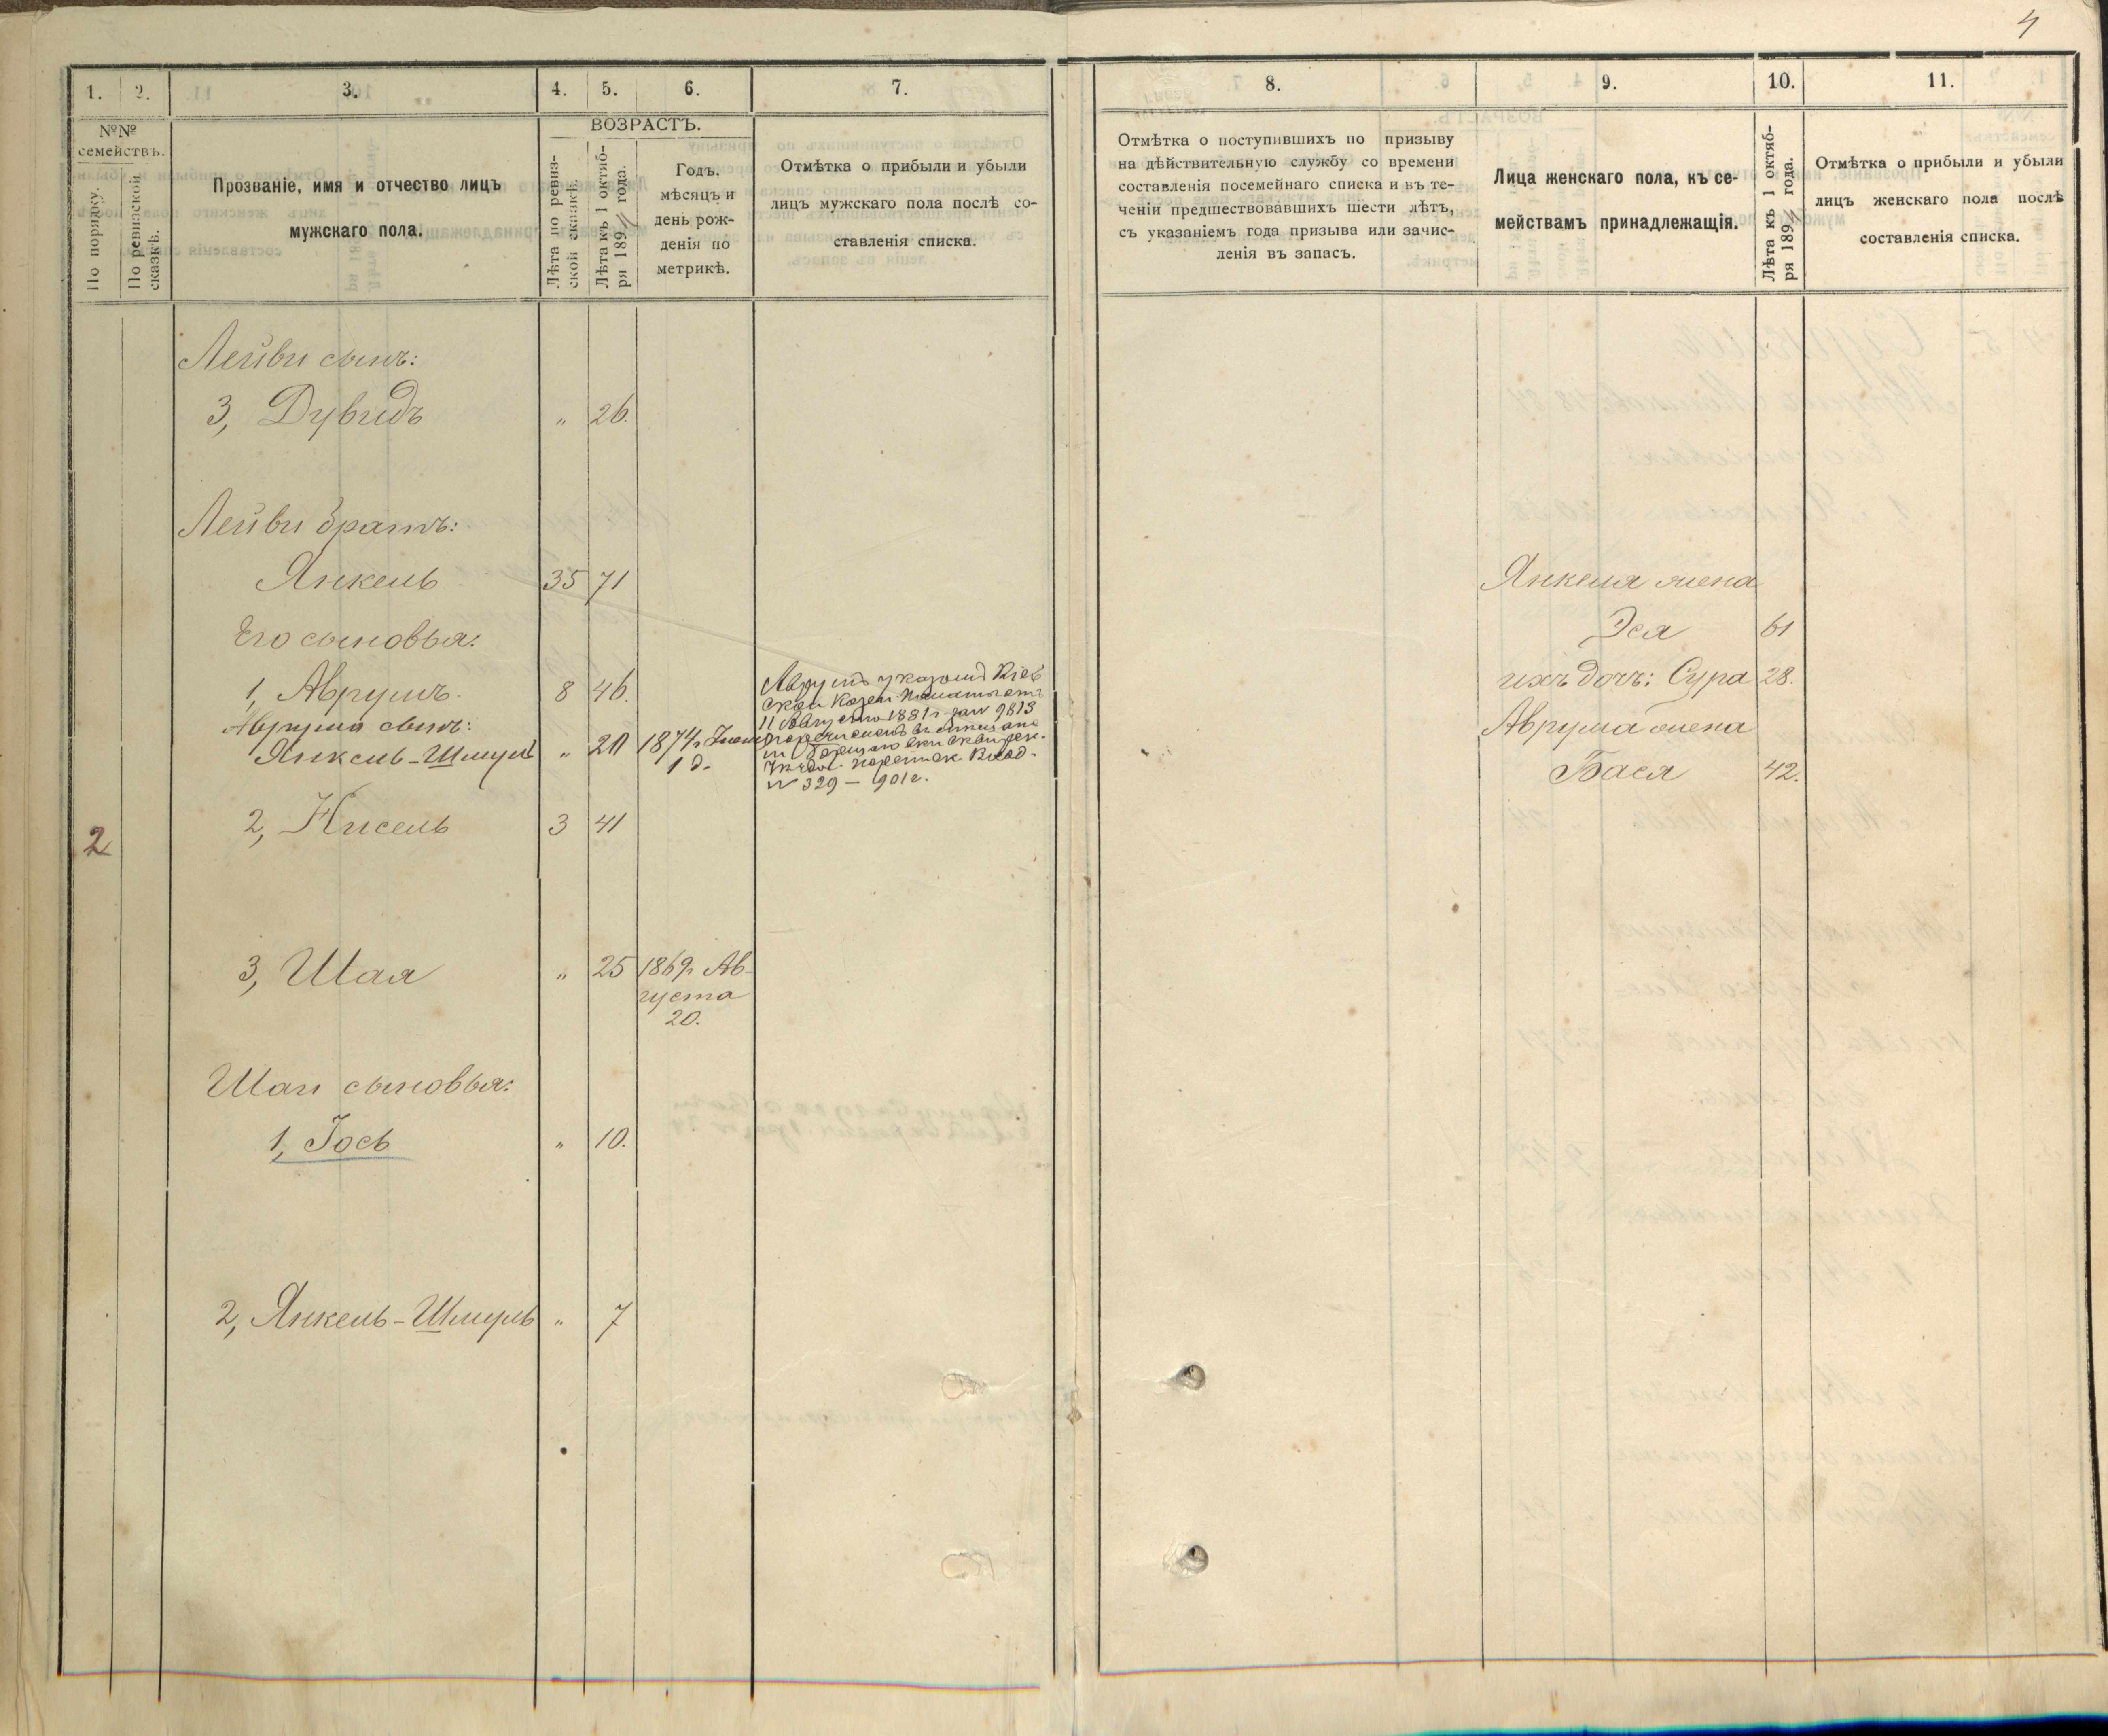 4
1.
2.
3.
4.
5.
6.
7.
№№
семействъ.
По порядку.
По ревизской
сказкѣ.
Прозваніе, имя и отчество лицъ
мужскаго пола.
ВОЗРАСТЪ.
Лѣта по ревиз-
ской сказкѣ.
Лѣта къ 1 октяб-
ря 1894 года.
Годъ.
мѣсяцъ и
день рож-
денія по
метрикѣ.
Отмѣтка о прибыли и убыли
лицъ мужскаго пола послѣ со-
ставленія списка.
Лейви сынъ:
3, Дувидъ „ 26.
Лейви братъ:
Янкель 35 71
Его сыновья:
1, Аврумъ. 8 46.
Аврума сынъ:
Янкель-Шмуль „ 20 1874г.
1 д.
Аврумъ указомъ Кіев
ской Казен.
11 Августа 1881г. за № 9813
перечисленъ въ мещане
№ 329 — 901г.
2
2, Кисель 3 41
3, Шая „ 25 1869г. Ав-
густа
20.
Шаи сыновья:
1, Іось „ 10.
2, Янкель-Шмуль „ 7
8.
9.
10.
11.
Отмѣтка о поступившихъ по призыву
на дѣйствительную службу со времени
составленія посемейнаго списка и въ те-
ченіи предшествовавшихъ шести лѣтъ,
съ указаніемъ года призыва или зачис-
ленія въ запасъ.
Лица женскаго пола, къ се-
мействамъ принадлежащія.
Лѣта къ 1 октяб-
ря 1894 года.
Отмѣтка о прибыли и убыли
лицъ женскаго пола послѣ
составленія списка.
Янкеля жена
Эся 61
ихъ дочь: Сура 28.
Аврума жена
Бася 42.